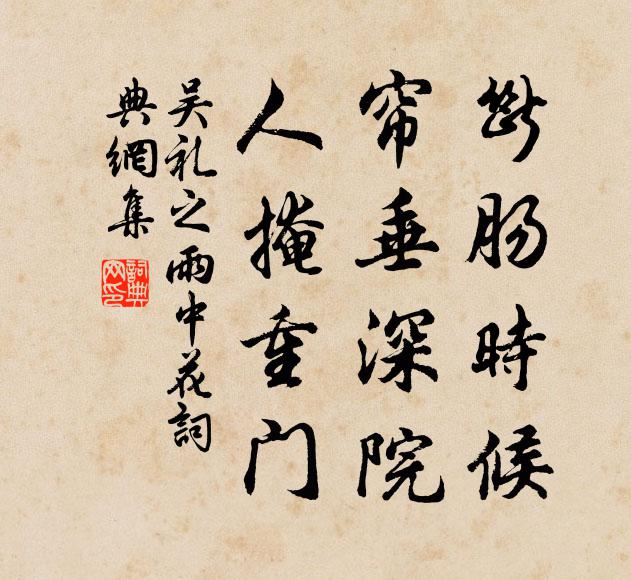 断肠時候
帘垂深院
人掩重门
吴礼之雨中花詞
典網集
詞典网印